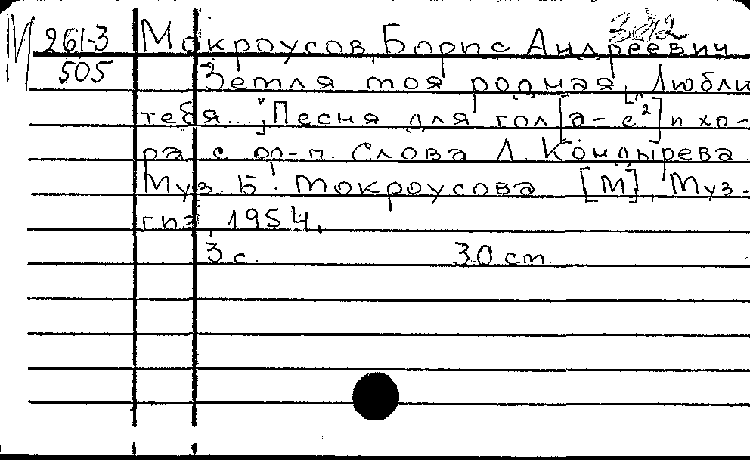 М 261-3 Мокроусов, Борис Андреевич
505 Земля моя родная, Люблю
тебя..." Песня для гол[а-е²] и хо-
ра с ф-п. Слова Л. Кондырева
Муз. Б. Мокроусова. [М], Муз-
гиз, 1954.
3 с. 30 cm